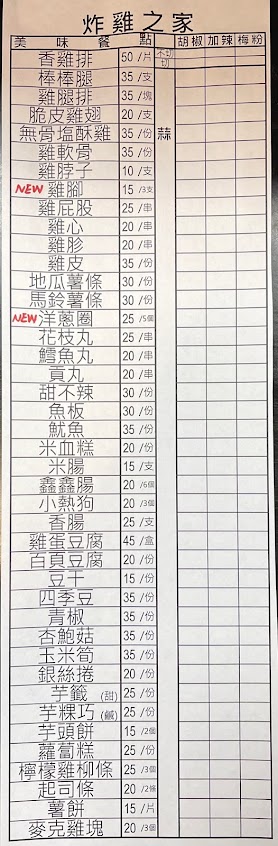 炸雞之家
美味餐 點 胡椒 加辣 梅粉
香雞排 50/片 不切 切
棒棒腿 35/支
雞腿排 35/塊
脆皮雞翅 20/支
無骨塩酥雞 35/份 蒜
雞軟骨 35/份
雞脖子 10/支
NEW 雞腳 15/3支
雞屁股 25/串
雞心 20/串
雞胗 20/串
雞皮 35/份
地瓜薯條 30/份
馬鈴薯條 30/份
NEW 洋蔥圈 25/5個
花枝丸 25/串
鱈魚丸 20/串
貢丸 20/串
甜不辣 30/份
魚板 30/份
魷魚 35/份
米血糕 20/份
米腸 15/支
鑫鑫腸 20/6個
小熱狗 20/3個
香腸 25/支
雞蛋豆腐 45/盒
百頁豆腐 20/份
豆干 15/份
四季豆 35/份
青椒 35/份
杏鮑菇 35/份
玉米筍 35/份
銀絲捲 20/份
芋籤(甜) 25/份
芋粿巧(鹹) 25/份
芋頭餅 15/2個
蘿蔔糕 25/份
檸檬雞柳條 25/3個
起司條 20/2條
薯餅 15/片
麥克雞塊 20/3個